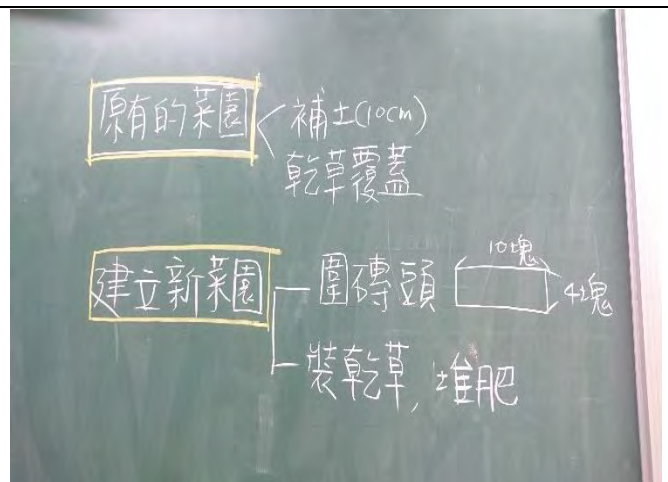 原有的菜園
補土(10cm)
乾草覆蓋
建立新菜園
圍磚頭
10塊
4塊
裝乾草,堆肥